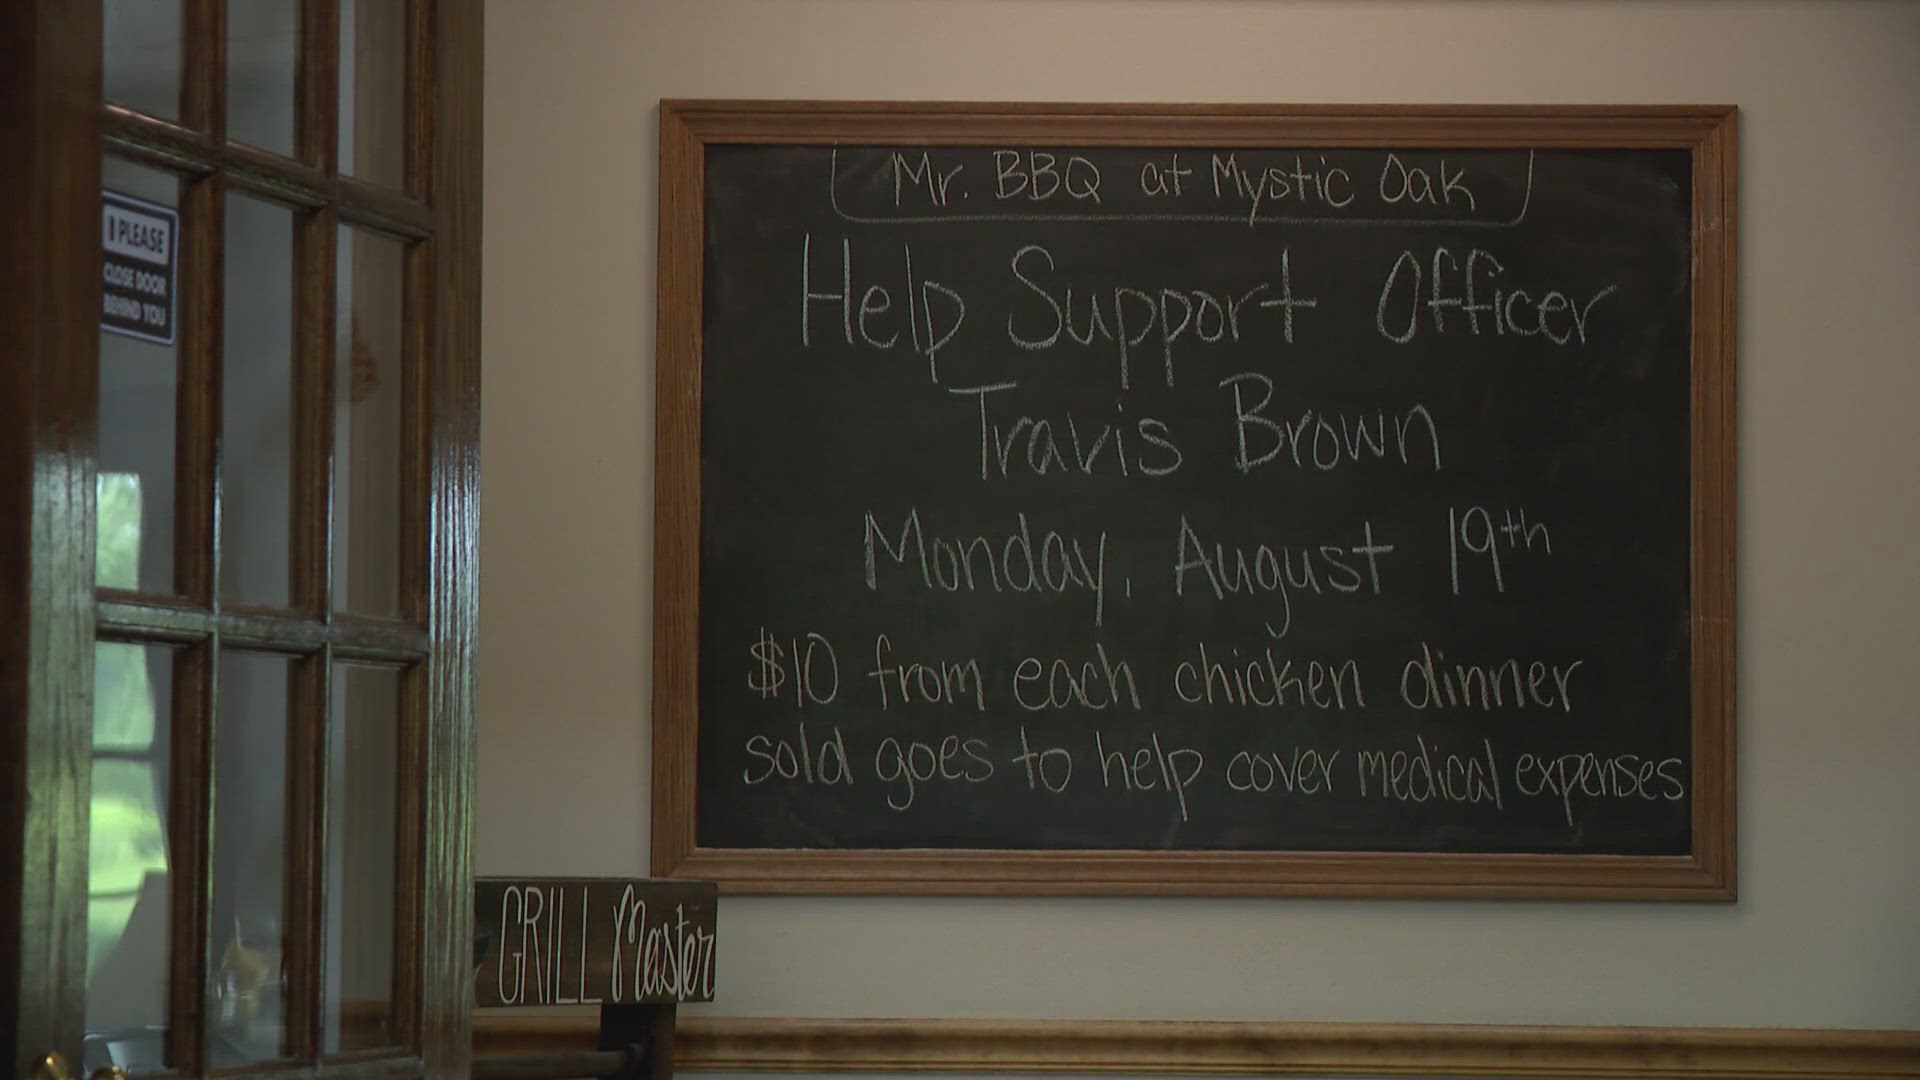 I PLEASE
CLOSE DOOR
BEHIND YOU
Mr. BBQ at Mystic Oak
Help Support Officer
Travis Brown
Monday, August 19th
$10 from each chicken dinner
sold goes to help cover medical expenses
GRILL Master